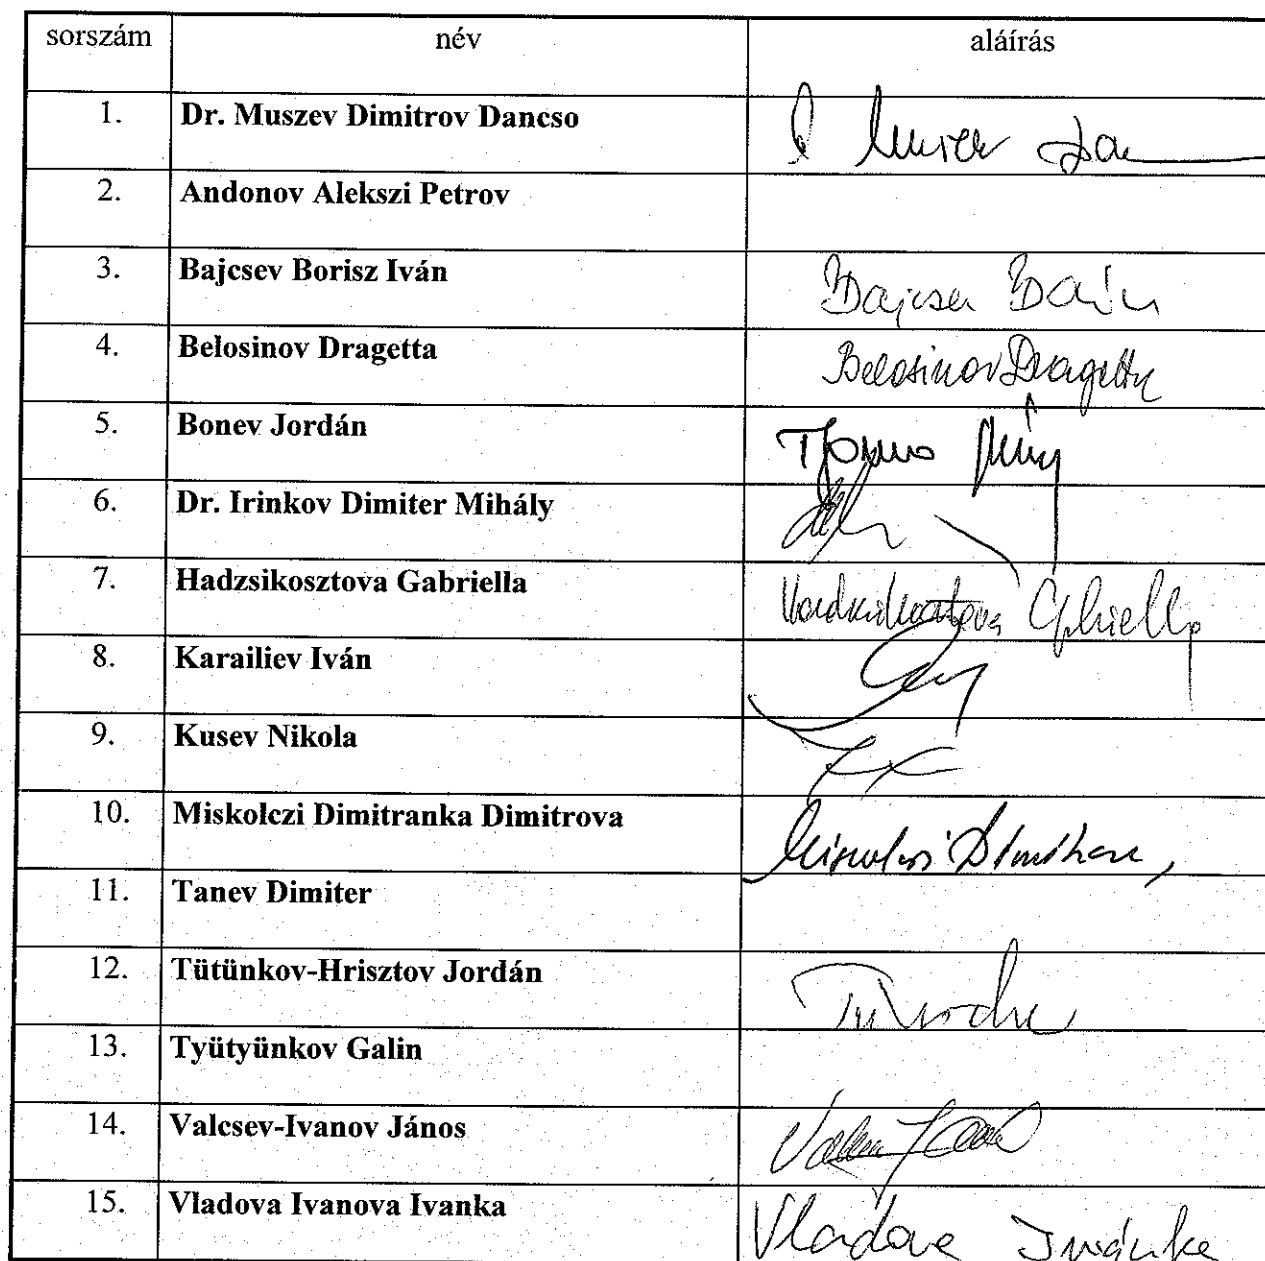 sorszám név aláírás
1. Dr. Muszev Dimitrov Dancso
2. Andonov Alekszi Petrov
3. Bajcsev Borisz Iván
4. Belosinov Dragetta Belosinov Dragetta
5. Bonev Jordán
6. Dr. Irinkov Dimiter Mihály
7. Hadzsikosztova Gabriella
8. Karailiev Iván
9. Kusev Nikola
10. Miskolczi Dimitranka Dimitrova
11. Tanev Dimiter
12. Tütünkov-Hrisztov Jordán
13. Tyütyünkov Galin
14. Valcsev-Ivanov János
15. Vladova Ivanova Ivanka Vladova Ivánka